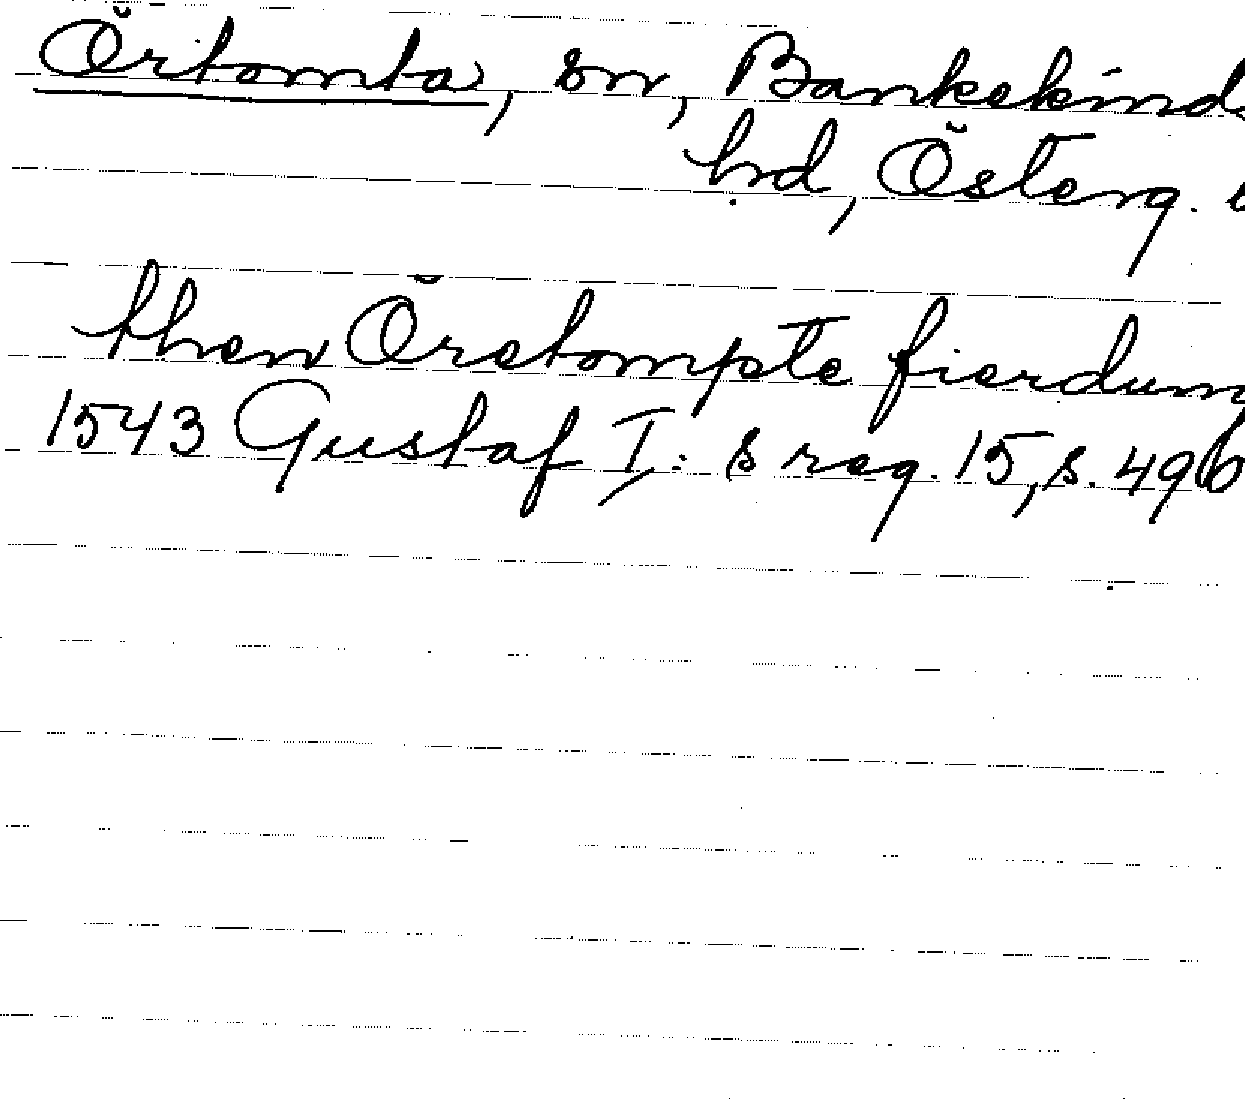 Örtomta, sn, Bankekinds
hd, Österg.
then Öretompte fierdung
1543 Gustaf I:s reg. 15, s. 496